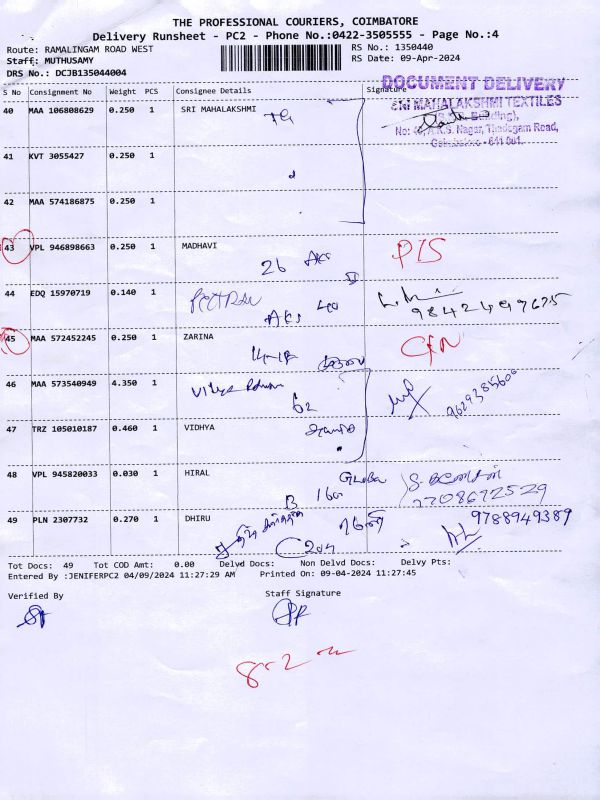 THE PROFESSIONAL COURIERS, COIMBATORE
Delivery Runsheet - PC2 - Phone No.:0422-3505555 - Page No.:4
Route: RAMALINGAM ROAD WEST
RS No.: 1350440
Staff: MUTHUSAMY
RS Date: 09-Apr-2024
DRS No.: DCJB135044004
S No Consignment No Weight PCS Consignee Details Signature
DOCUMENT DELIVERY
SRI MAHALAKSHMI TEXTILES
40 MAA 106808629 0.250 1 SRI MAHALAKSHMI
Nagar, Thadagam Road,
Coimbatore - 641 001.
41 KVT 3055427 0.250 1
42 MAA 574186875 0.250 1
43 VPL 946898663 0.250 1 MADHAVI
26 AKS
44 EDQ 15970719 0.140 1
AKS
9842499625
45 MAA 572452245 0.250 1 ZARINA
46 MAA 573540949 4.350 1
62
9629385600
47 TRZ 105010187 0.460 1 VIDHYA
48 VPL 945820033 0.030 1 HIRAL
B 160
2708672529
49 PLN 2307732 0.270 1 DHIRU
9788949389
C 204
Tot Docs: 49 Tot COD Amt: 0.00 Delvd Docs: Non Delvd Docs: Delvy Pts:
Entered By :JENIFERPC2 04/09/2024 11:27:29 AM Printed On: 09-04-2024 11:27:45
Verified By Staff Signature
8-2